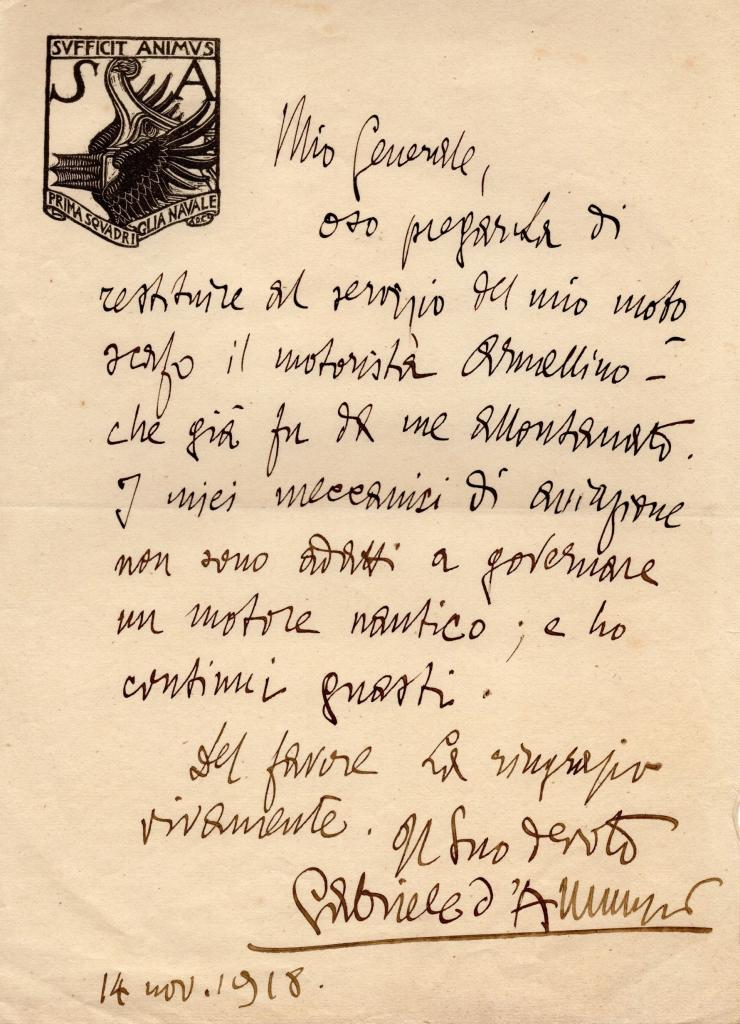 SVFFICIT ANIMVS
S A
PRIMA SQVADRIGLIA NAVALE
Mio Generale,
oso pregarLa di
restituire al servizio del mio moto
scafo il motorista Armellino –
che già fu da me allontanato.
I miei meccanici di aviazione
non sono adatti a governare
un motore nautico; e ho
continui guasti.
Del favore La ringrazio
vivamente. Il Suo devoto
Gabriele d'Annunzio
14 nov. 1918.